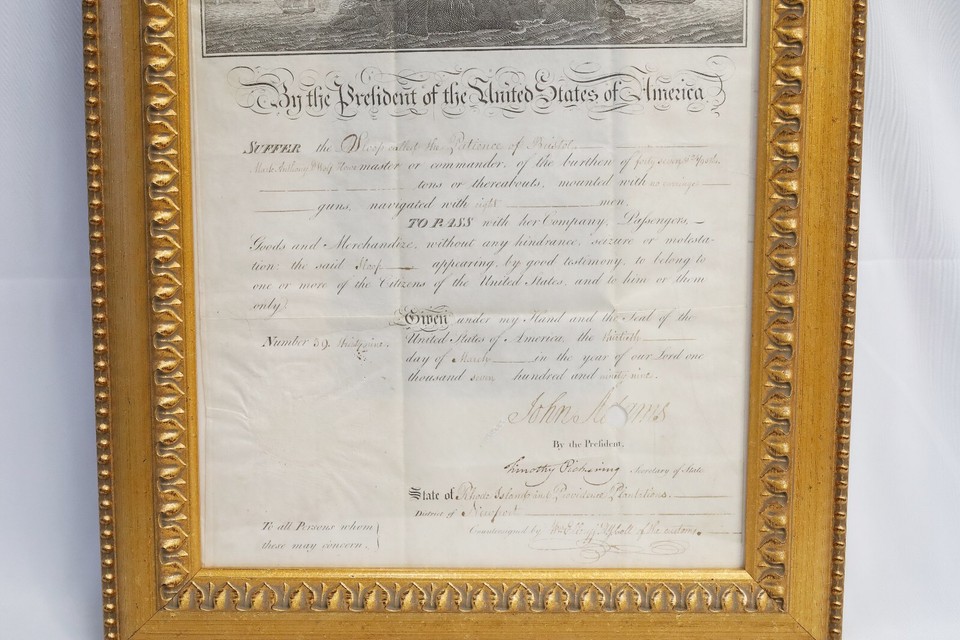 By the President of the United States of America
SUFFER the Sloop called the Patience of Bristol
Mark Anthony D'Wolf master or commander, of the burthen of forty seven
tons or thereabouts, mounted with no carriage
guns, navigated with eight men,
TO PASS with her Company, Passengers,
Goods and Merchandize, without any hindrance, seizure or molesta-
tion; the said Sloop appearing, by good testimony, to belong to
one or more of the Citizens of the United States, and to him or them
only.
Given under my Hand and the Seal of the
Number 39. United States of America, the thirtieth
day of March in the year of our Lord one
thousand seven hundred and ninety nine.
John Adams
By the President,
Timothy Pickering Secretary of State
State of Rhode Island and Providence Plantations.
District of Newport
To all Persons whom
these may concern.
Countersigned by Coll of the customs.